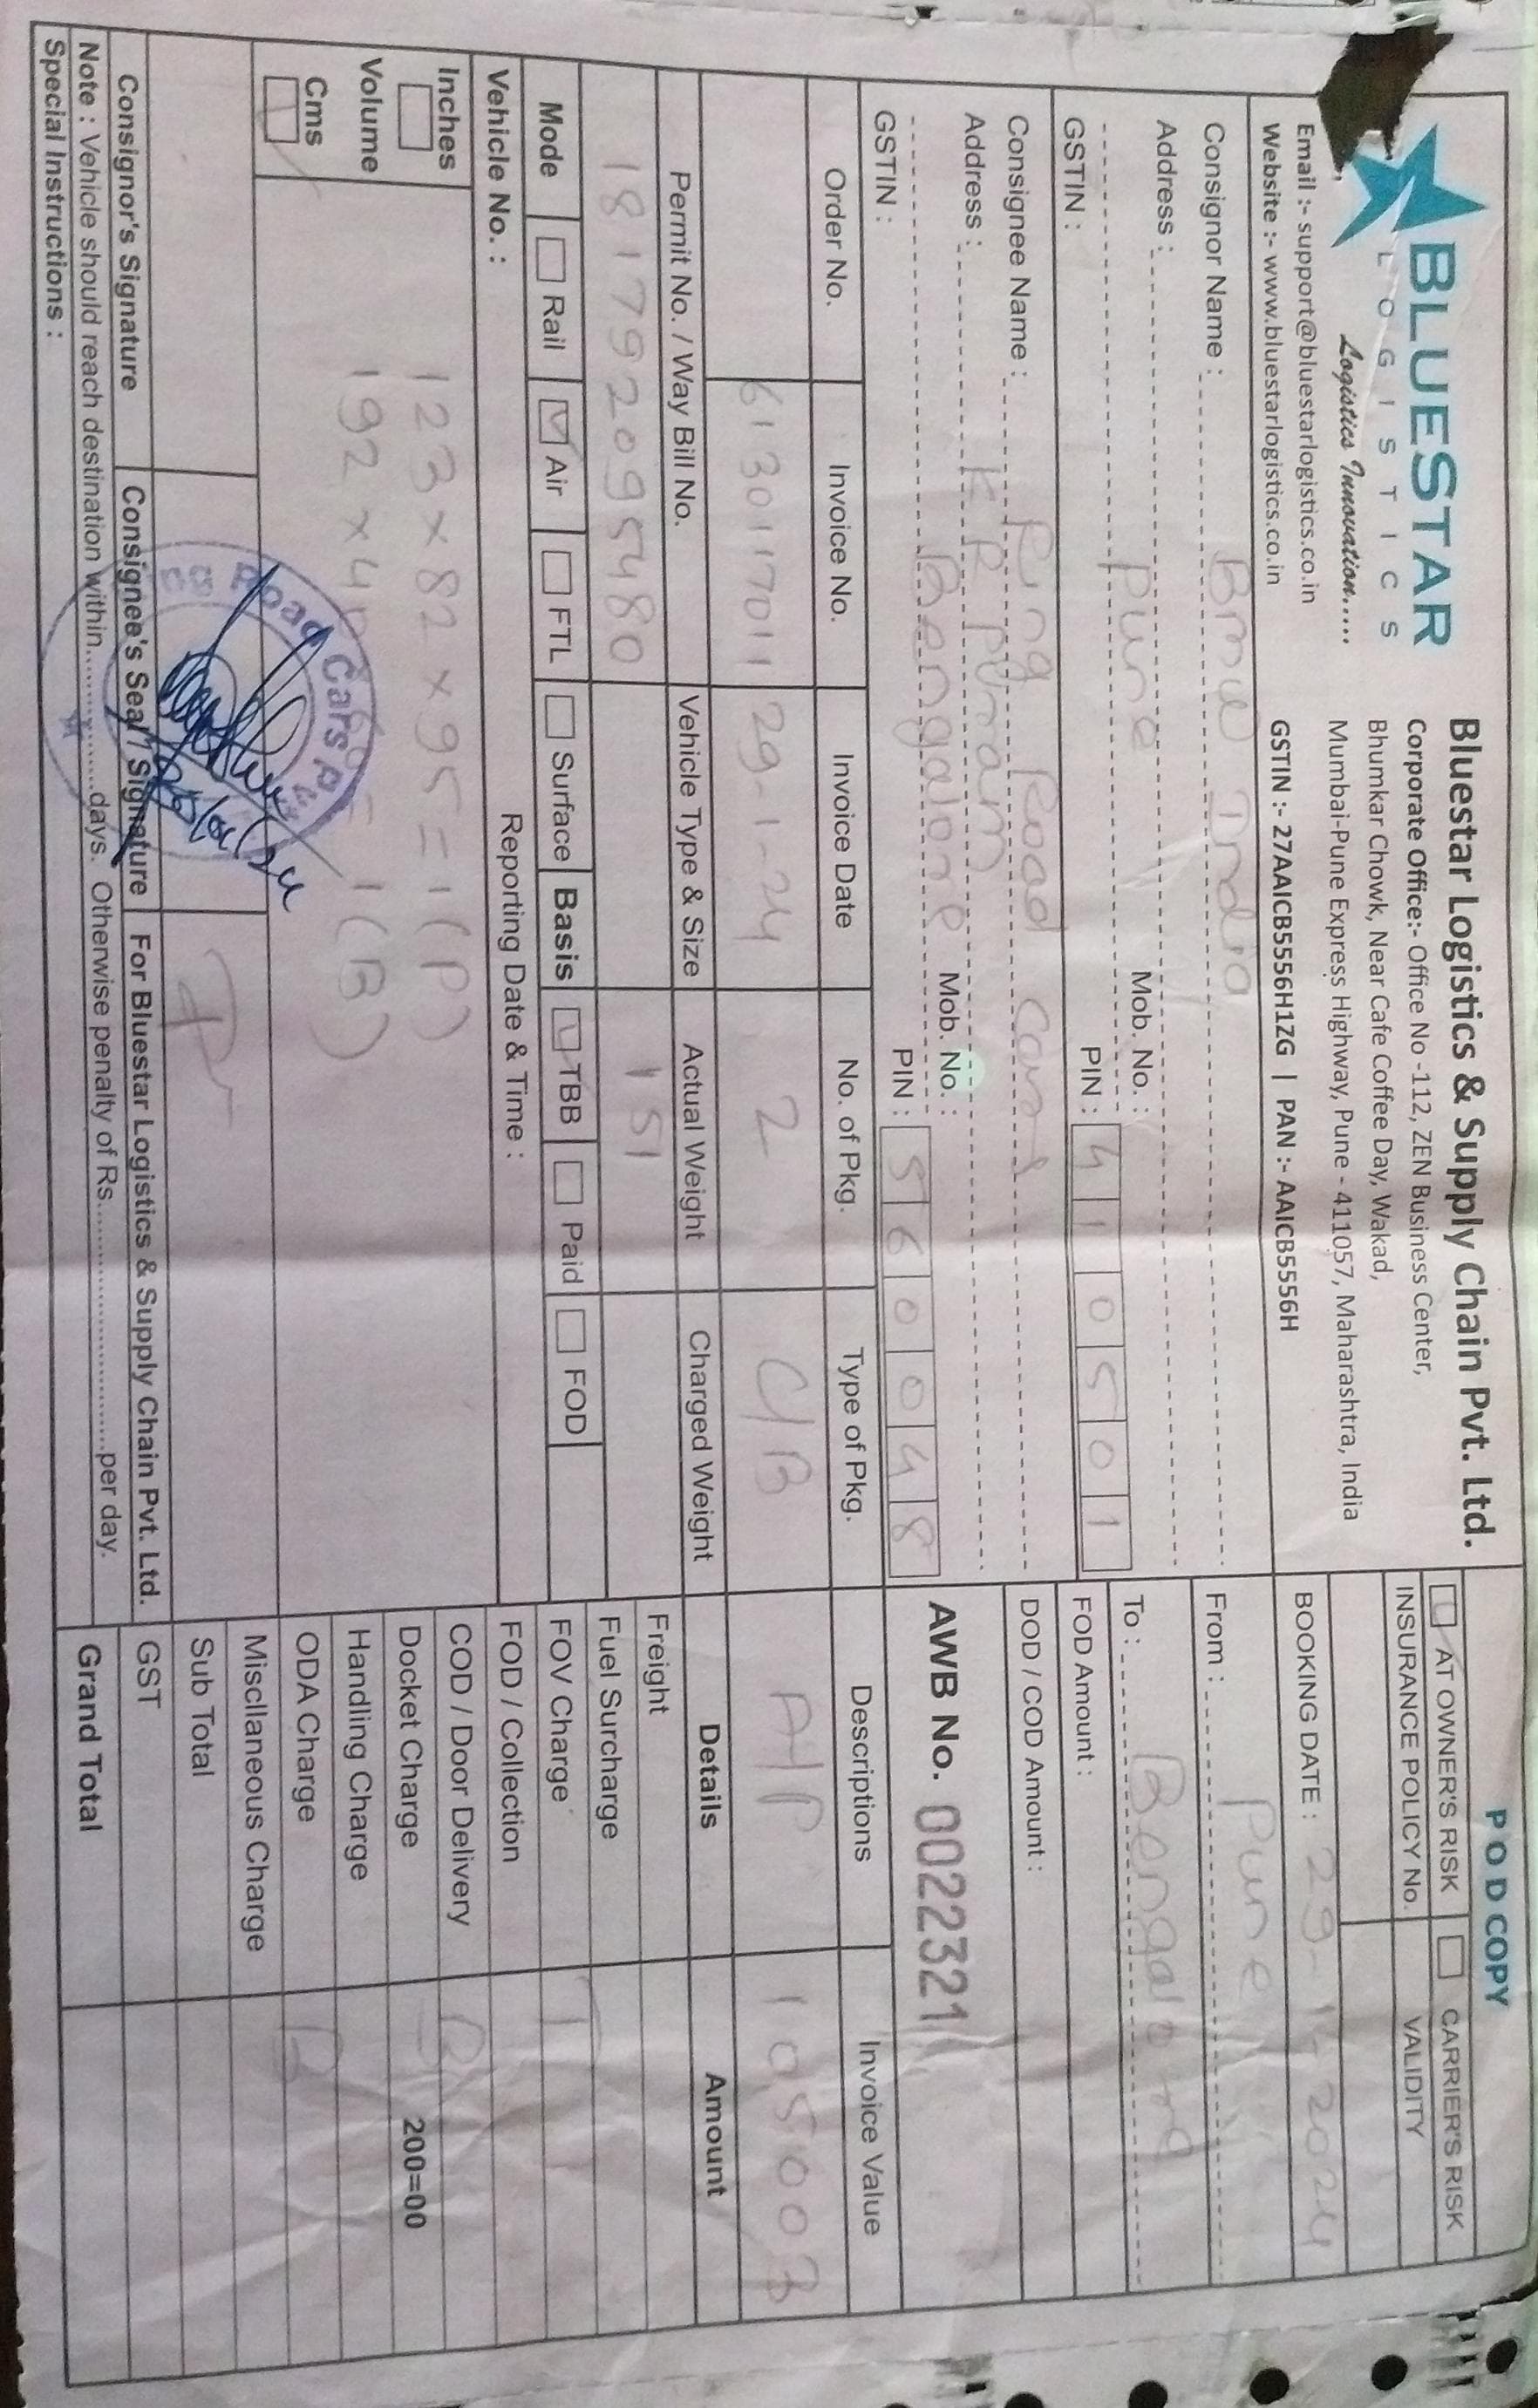 BLUESTAR
LOGISTICS
Logistics Innovation.....
Email :- support@bluestarlogistics.co.in
Website :- www.bluestarlogistics.co.in
Bluestar Logistics & Supply Chain Pvt. Ltd.
Corporate Office:- Office No -112, ZEN Business Center,
Bhumkar Chowk, Near Cafe Coffee Day, Wakad,
Mumbai-Pune Express Highway, Pune - 411057, Maharashtra, India
GSTIN :- 27AAICB5556H1ZG | PAN :- AAICB5556H
POD COPY
AT OWNER'S RISK CARRIER'S RISK
INSURANCE POLICY No. VALIDITY
BOOKING DATE : 29-1-2024
From : Pune
To : Bengalore
FOD Amount :
DOD / COD Amount :
AWB No. 0022321
Consignor Name : BMW India
Address :
Pune Mob. No. :
GSTIN : PIN : 410501
Consignee Name : Ring Road Cars
Address : K R Puram
Bengalore Mob. No. :
GSTIN : PIN : 560048
Order No. Invoice No. Invoice Date No. of Pkg. Type of Pkg. Descriptions Invoice Value
6130117011 29-1-24 2 C/B A/P 105003
Permit No. / Way Bill No. Vehicle Type & Size Actual Weight Charged Weight
181792095480 151
Mode Rail Air FTL Surface Basis TBB Paid FOD
Vehicle No. : Reporting Date & Time :
Inches
Volume
Cms
123 x 82 x 95 = 1 (P)
192 x = 1 (B)
Details Amount
Freight
Fuel Surcharge
FOV Charge T
FOD / Collection
COD / Door Delivery B
Docket Charge 200=00
Handling Charge
ODA Charge B
Miscllaneous Charge
Sub Total
GST
Grand Total
Road Cars Pvt
Consignor's Signature Consignee's Seal / Signature For Bluestar Logistics & Supply Chain Pvt. Ltd.
Note : Vehicle should reach destination within..................days. Otherwise penalty of Rs...............................per day.
Special Instructions :